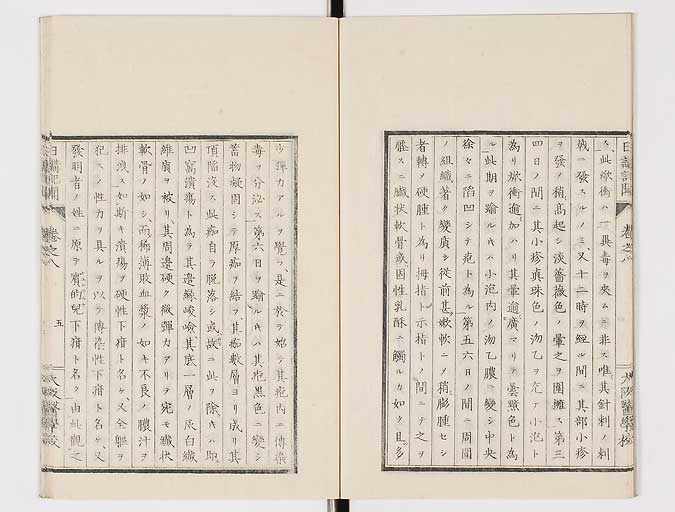 日講記聞
卷之八
大阪醫學校
ス、此焮衝ハ一異毒ヲ夾ムニ非ス唯其針刺ノ刺
戟ニ發スルノミ又十二時ヲ經ル間ニ其部小疹
ヲ發ノ稍髙起シ淡薔薇色ノ暈之ヲ圍擁ス第三
四日ノ間ニ其小疹眞珠色ノ汋乙ヲ充テ小泡ト
為リ焮衝逾加ハリ其暈逾廣マリテ曇黯色ト為
ル此期ヲ踰ルキハ小泡内ノ汋乙膿ニ變シ中央
徐々ニ陷凹シテ疱ト為ル第五六日ノ間ニ周圍
ノ組織著ク變質シ従前甚嫰軟ニノ稍膨腫セシ
者轉ノ硬腫ト為リ拇指ト示指トノ間ニテ之ヲ
壓スニ臓状軟骨或固性乳酥ニ觸ルカ如ク且多
少彈力アルヲ覺、是ニ於テ始テ其疱内ニ傳染
毒ヲ分泌ス第六日ヲ踰ルキハ其疱黑色ニ變シ
畜物凝固シテ厚痂ヲ結ヲ其痂數層ヨリ成リ其
頂陷没ス此痂自ラ脱落シ或故ニ此ヲ除キハ即
凹窩潰瘍ト為ラ其邊縁峻嶮其底一層ノ灰白纎
維膚ヲ被リ其周邊硬ク微彈力アリテ宛モ臓状
軟骨ノ如シ而稀薄敗血漿ノ如キ不良ノ膿汁ヲ
排洩ス如斯キ潰瘍ヲ硬性下疳ト名ケ又全軀ヲ
犯スノ性力ヲ具ルヲ以テ傳染性下疳ト名ケ又
發明者ノ姓ニ原テ賓的兒下疳ト名ク由此觀之
日講記聞
卷之八
五
大阪醫學校